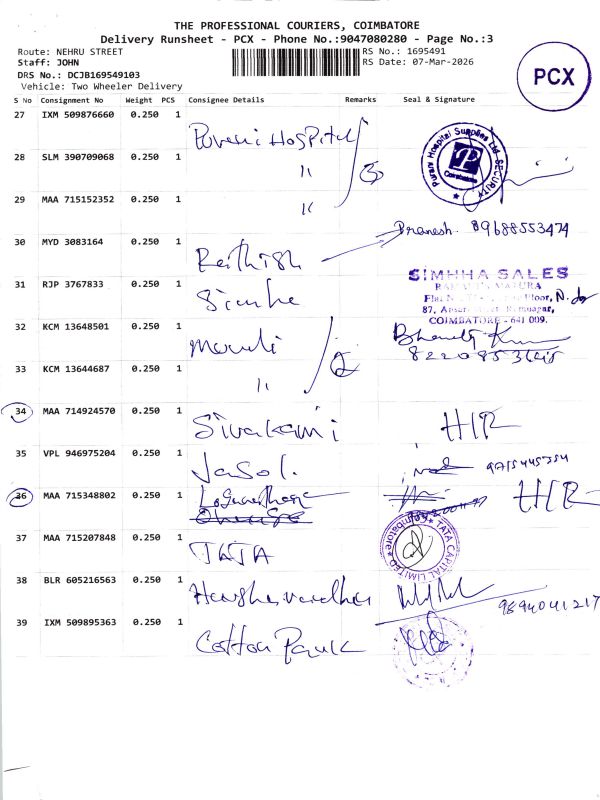 THE PROFESSIONAL COURIERS, COIMBATORE
Delivery Runsheet - PCX - Phone No.:9047080280 - Page No.:3
Route: NEHRU STREET
RS No.: 1695491
Staff: JOHN
RS Date: 07-Mar-2026
DRS No.: DCJB169549103
Vehicle: Two Wheeler Delivery
PCX
S No Consignment No Weight PCS Consignee Details Remarks Seal & Signature
27 IXM 509876660 0.250 1 Hospital
Purani Hospital Supplies Ltd SECURITY Coimbatore
28 SLM 390709068 0.250 1 "
29 MAA 715152352 0.250 1 "
30 MYD 3083164 0.250 1 Pranesh. 89688553474
31 RJP 3767833 0.250 1
SIMHHA SALES
87,
COIMBATORE - 641 009.
32 KCM 13648501 0.250 1
33 KCM 13644687 0.250 1 "
34 MAA 714924570 0.250 1 Sivakami
35 VPL 946975204 0.250 1 Jasol.
36 MAA 715348802 0.250 1
37 MAA 715207848 0.250 1 TATA
TATA CAPITAL LIMITED Coimbatore
38 BLR 605216563 0.250 1 9894041217
39 IXM 509895363 0.250 1 Cotton